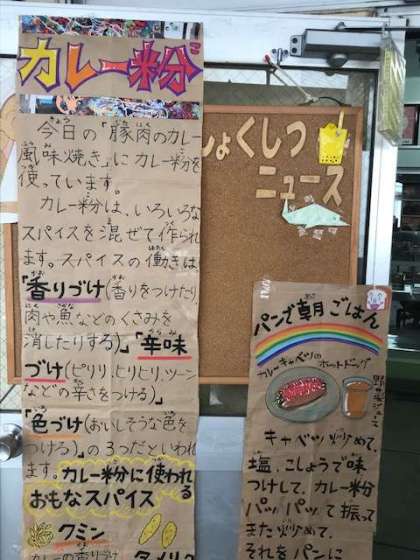 カレー粉
今日の「豚肉のカレー
風味焼き」にカレー粉を
使っています。
カレー粉は、いろいろな
スパイスを混ぜて作られ
ます。スパイスの働きは、
「香りづけ(香りをつけたり
肉や魚などのくさみを
消したりする)」「辛味
づけ(ピリリ、ヒリヒリ、ツーン
などの辛さをつける)」
「色づけ(おいしそうな色を
つける)」の3つだといわれ
ます。カレー粉に使われる
おもなスパイス
クミン
しょくしつ
ニュース
パンで朝ごはん
カレーキャベツのホットドッグ
野菜ジュース
キャベツ炒めて、
塩、こしょうで味
つけして、カレー粉
パッパッて振って
また炒めて、
それをパンに